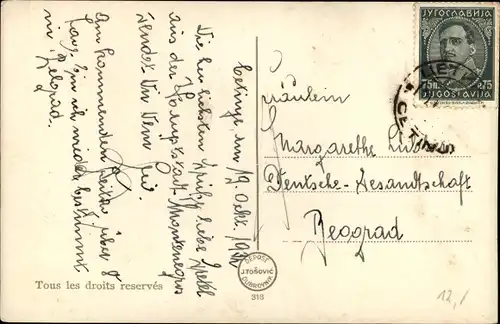 Cetinje, am 19. Okt. 19
Die herzlichsten Grüße, liebe
aus der Hauptstadt Montenegros
sendet Dir Dein
Am kommenden Freitag über 8
Tage bin ich wieder bestimmt
in Belgrad.
Fräulein
Margarethe
Deutsche-Gesandtschaft
Beograd
ЈУГОСЛАВИЈА
75п. P.75
JUGOSLAVIJA
DEPOSÉ
J. TOŠOVIĆ
DUBROVNIK
313
Tous les droits reservés
12,/